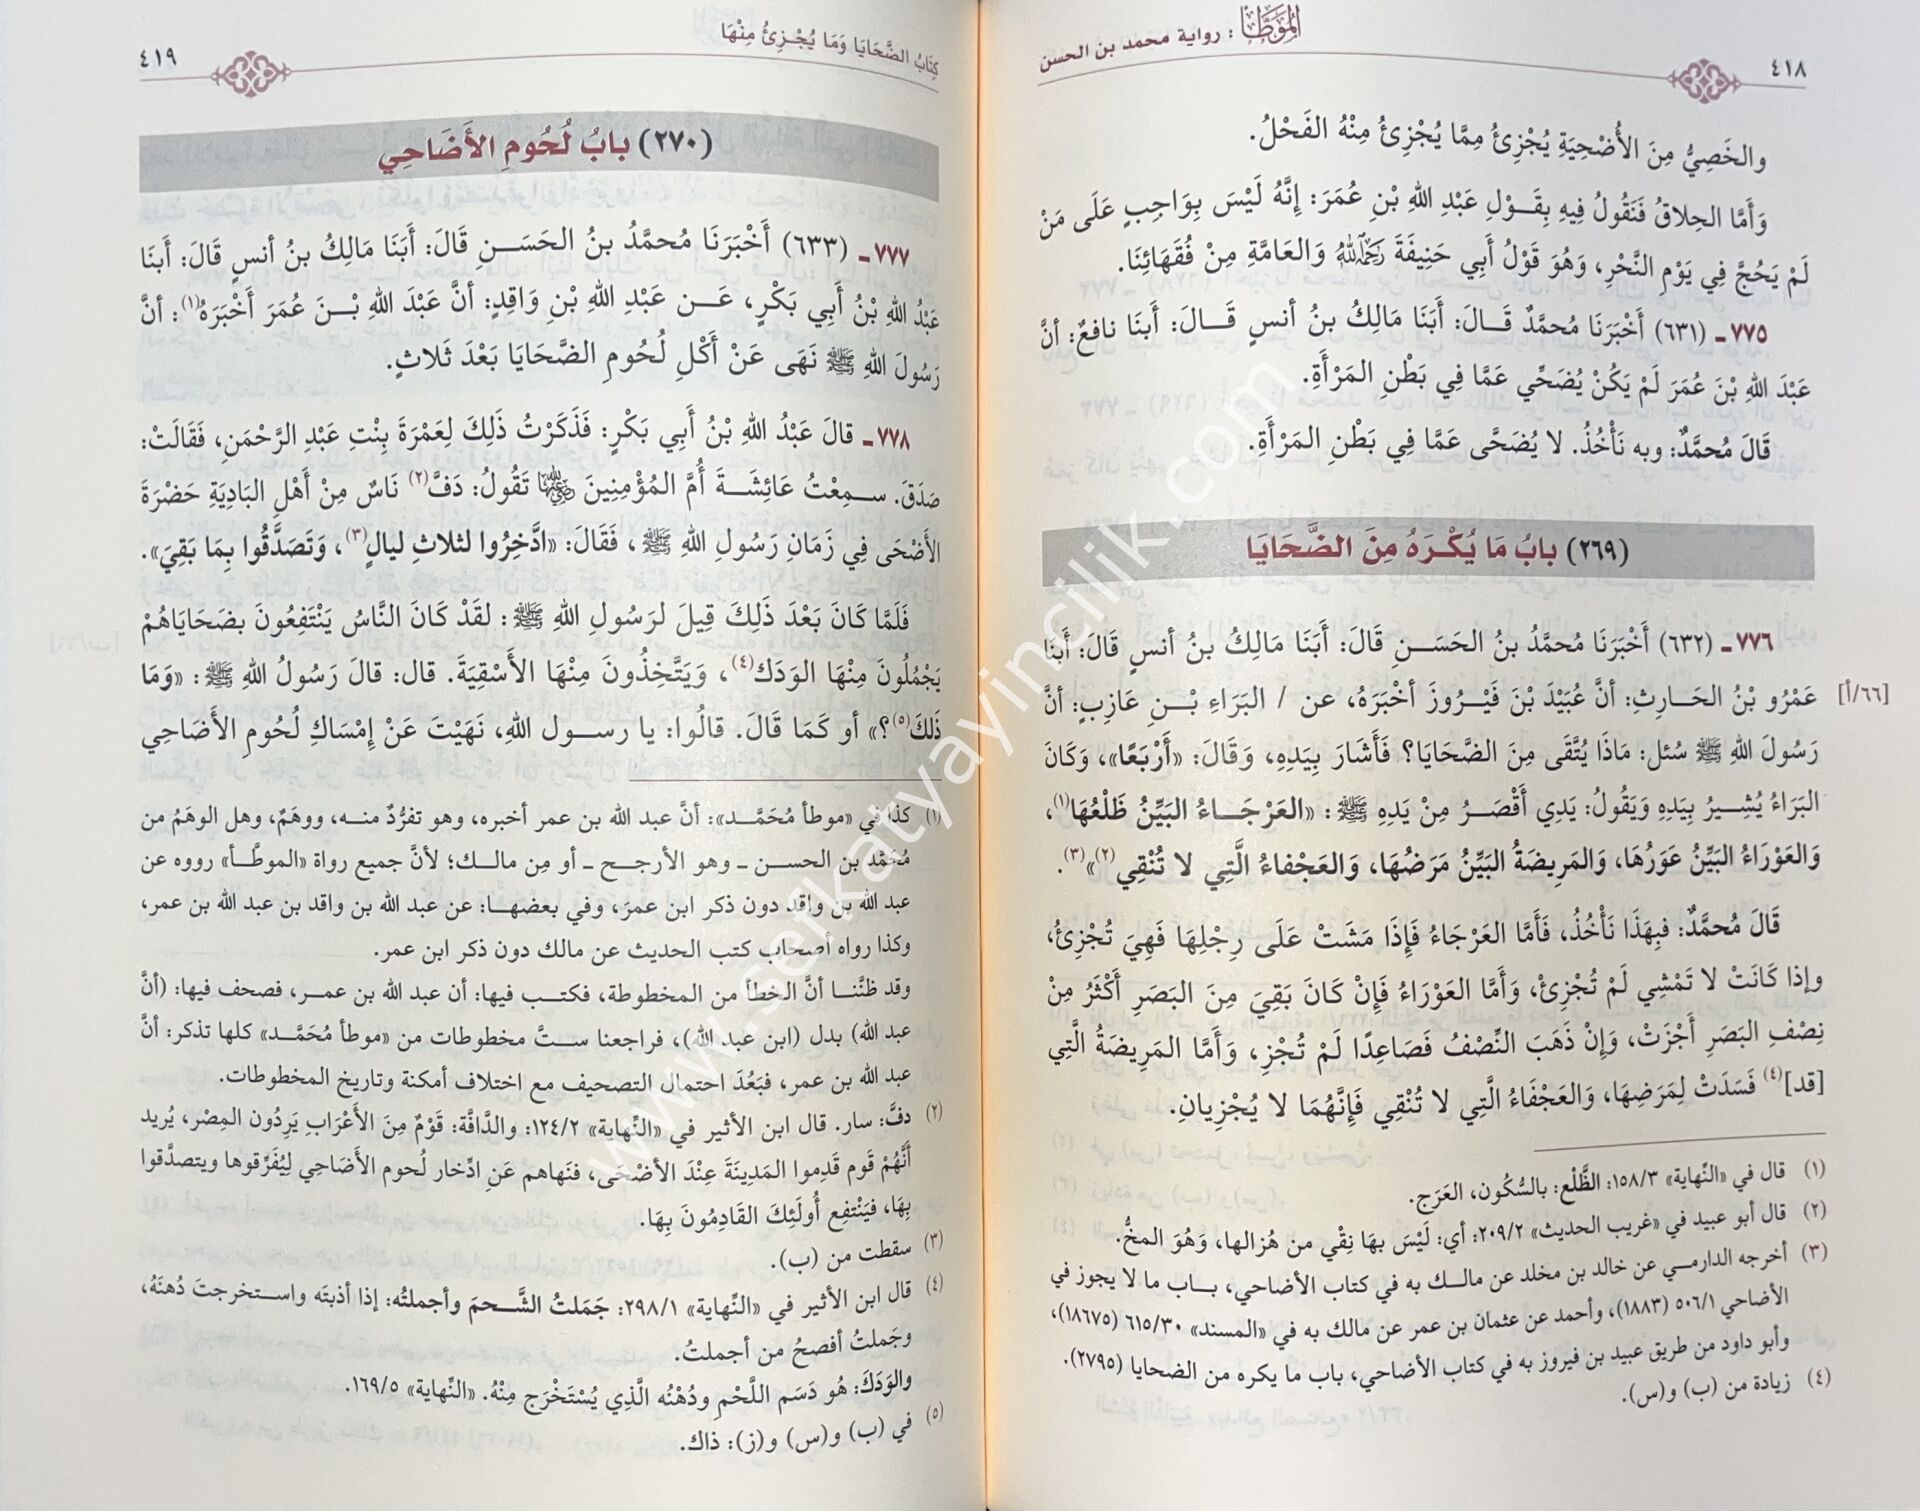 ٤١٨
الموطأ : رواية محمد بن الحسن
والخَصِيُّ مِنَ الأُضْحِيَةِ يُجْزِئُ مِمَّا يُجْزِئُ مِنْهُ الفَحْلُ.
وَأَمَّا الحِلاقُ فَنَقُولُ فِيهِ بِقَوْلِ عَبْدِ اللهِ بْنِ عُمَرَ: إِنَّهُ لَيْسَ بِوَاجِبٍ عَلَى مَنْ
لَمْ يَحُجَّ فِي يَوْمِ النَّحْرِ، وَهُوَ قَوْلُ أَبِي حَنِيفَةَ رَحِمَهُ اللهُ وَالعَامَّةِ مِنْ فُقَهَائِنَا.
٧٧٥ ـ (٦٣١) أَخْبَرَنَا مُحمَّدٌ قَالَ: أَبَنَا مَالِكُ بنُ أنسٍ قَالَ: أَبنَا نافعٌ: أنَّ
عَبْدَ اللهِ بْنَ عُمَرَ لَمْ يَكُنْ يُضَحِّي عَمَّا فِي بَطْنِ المَرْأَةِ.
قَالَ مُحمَّدٌ: وبه نَأْخُذُ. لا يُضَحَّى عَمَّا فِي بَطْنِ المَرْأَةِ.
(٢٦٩) بابُ مَا يُكْرَهُ مِنَ الضَّحَايَا
٧٧٦ ـ (٦٣٢) أَخْبَرَنَا مُحمَّدُ بنُ الحَسَنِ قَالَ: أَبَنَا مَالِكُ بنُ أنسٍ قَالَ: أَبنَا
عَمْرُو بْنُ الحَارِثِ: أنَّ عُبَيْدَ بْنَ فَيْرُوزَ أخْبَرَهُ، عن / البَرَاءِ بْنِ عَازِبٍ: أنَّ [٦٦/أ]
رَسُولَ اللهِ ﷺ سُئل: مَاذَا يُتَّقَى مِنَ الضَّحَايَا؟ فَأَشَارَ بِيَدِهِ، وَقَالَ: «أَرْبَعًا»، وَكَانَ
البَرَاءُ يُشِيرُ بِيَدِهِ وَيَقُولُ: يَدِي أَقْصَرُ مِنْ يَدِهِ ﷺ: «العَرْجَاءُ البَيِّنُ ظَلْعُهَا(١)،
وَالعَوْرَاءُ البَيِّنُ عَوَرُهَا، وَالمَرِيضَةُ البَيِّنُ مَرَضُهَا، وَالعَجْفاءُ الَّتِي لا تُنْقِي(٢)»(٣).
قَالَ مُحمَّدٌ: فبِهَذَا نَأْخُذُ، فَأَمَّا العَرْجَاءُ فَإِذَا مَشَتْ عَلَى رِجْلِهَا فَهِيَ تُجْزِئُ،
وإذا كَانَتْ لا تَمْشِي لَمْ تُجْزِئْ، وَأَمَّا العَوْرَاءُ فَإِنْ كَانَ بَقِيَ مِنَ البَصَرِ أَكْثَرُ مِنْ
نِصْفِ البَصَرِ أَجْزَتْ، وَإِنْ ذَهَبَ النِّصْفُ فَصَاعِدًا لَمْ تُجْزِ، وَأَمَّا المَرِيضَةُ الَّتِي
[قد](٤) فَسَدَتْ لِمَرَضِهَا، وَالعَجْفَاءُ الَّتِي لا تُنْقِي فَإِنَّهُمَا لا يُجْزِيانِ.
(١) قال في «النِّهاية» ١٥٨/٣: الظَّلْع: بالسُّكُون، العَرَج.
(٢) قال أبو عبيد في «غريب الحديث» ٢٠٩/٢: أي: لَيْسَ بهَا نِقْي من هُزالها، وَهُوَ المخُّ.
(٣) أخرجه الدارمي عن خالد بن مخلد عن مالك به في كتاب الأضاحي، باب ما لا يجوز في
الأضاحي ٥٠٦/١ (١٨٨٣)، وأحمد عن عثمان بن عمر عن مالك به في «المسند» ٦١٥/٣٠ (١٨٦٧٥)،
وأبو داود من طريق عبيد بن فيروز به في كتاب الأضاحي، باب ما يكره من الضحايا (٢٧٩٥).
(٤) زيادة من (ب) و(س).
كِتَابُ الضَّحَايَا وَمَا يُجْزِئُ مِنْهَا
٤١٩
(٢٧٠) بابُ لُحُومِ الأَضَاحِي
٧٧٧ ـ (٦٣٣) أَخْبَرَنَا مُحمَّدُ بنُ الحَسَنِ قَالَ: أَبَنَا مَالِكُ بنُ أنسٍ قَالَ: أَبنَا
عَبْدُ اللهِ بْنُ أَبِي بَكْرٍ، عَن عَبْدِ اللهِ بْنِ وَاقِدٍ: أنَّ عَبْدَ اللهِ بْنَ عُمَرَ أَخْبَرَهُ(١): أنَّ
رَسُولَ اللهِ ﷺ نَهَى عَنْ أَكْلِ لُحُومِ الضَّحَايَا بَعْدَ ثَلاثٍ.
٧٧٨ ـ قالَ عَبْدُ اللهِ بْنُ أَبِي بَكْرٍ: فَذَكَرْتُ ذَلِكَ لِعَمْرَةَ بِنْتِ عَبْدِ الرَّحْمَنِ، فَقَالَتْ:
صَدَقَ. سمِعْتُ عَائِشَةَ أُمَّ المُؤْمِنِينَ رَضِيَ اللهُ عَنْهَا تَقُولُ: دَفَّ(٢) نَاسٌ مِنْ أَهْلِ البَادِيَةِ حَضْرَةَ
الأَضْحَى فِي زَمَانِ رَسُولِ اللهِ ﷺ، فَقَالَ: «ادَّخِرُوا لثلاثِ ليالٍ(٣)، وَتَصَدَّقُوا بِمَا بَقِيَ».
فَلَمَّا كَانَ بَعْدَ ذَلِكَ قِيلَ لرَسُولِ اللهِ ﷺ: لقَدْ كَانَ النَّاسُ يَنْتَفِعُونَ بضَحَايَاهُمْ
يَجْمُلُونَ مِنْهَا الوَدَك(٤)، وَيَتَّخِذُونَ مِنْهَا الأَسْقِيَةَ. قال: قالَ رَسُولُ اللهِ ﷺ: «وَمَا
ذَلكَ(٥)؟» أو كَمَا قَالَ. قالُوا: يا رسول اللهِ، نَهَيْتَ عَنْ إمْسَاكِ لُحُومِ الأَضَاحِي
(١) كذا في «موطأ مُحَمَّد»: أنَّ عبد الله بن عمر أخبره، وهو تفرُّدٌ منه، ووهَمٌ، وهل الوهَمُ من
مُحَمَّد بن الحسن ـ وهو الأرجح ـ أو مِن مالك؛ لأنَّ جميع رواة «الموطَّأ» رووه عن
عبد الله بن واقد دون ذكر ابن عمرَ، وفي بعضها: عن عبد الله بن واقد بن عبد الله بن عمر،
وكذا رواه أصحاب كتب الحديث عن مالك دون ذكر ابن عمر.
وقد ظنَّنا أنَّ الخطأ من المخطوطة، فكتب فيها: أن عبد الله بن عمر، فصحف فيها: (أنَّ
عبد الله) بدل (ابن عبد الله)، فراجعنا ستَّ مخطوطات من «موطأ مُحَمَّد» كلها تذكر: أنَّ
عبد الله بن عمر، فبَعُدَ احتمال التصحيف مع اختلاف أمكنة وتاريخ المخطوطات.
(٢) دفَّ: سار. قال ابن الأثير في «النِّهاية» ١٢٤/٢: والدَّافَّة: قَوْمٌ مِنَ الأَعْرَابِ يَرِدُون المِصْر، يُريد
أَنَّهُمْ قَوم قَدِموا المَدِينَةَ عِنْدَ الأضْحَى، فنَهاهم عَنِ ادِّخار لُحوم الأَضَاحِي لِيُفَرِّقوها ويتصدَّقوا
بِهَا، فيَنْتفِع أُولَئِكَ القَادِمُونَ بِهَا.
(٣) سقطت من (ب).
(٤) قال ابن الأثير في «النِّهاية» ٢٩٨/١: جَمَلتُ الشَّحمَ وأجملتُه: إذا أذبتَه واستخرجتَ دُهنَهُ،
وجَملتُ أفصحُ من أجملتُ.
والوَدَكَ: هُو دَسَم اللَّحْمِ ودُهْنُه الَّذِي يُسْتَخْرَج مِنْهُ. «النِّهاية» ١٦٩/٥.
(٥) في (ب) و(س) و(ز): ذاك.
www.serkatyayincilik.com